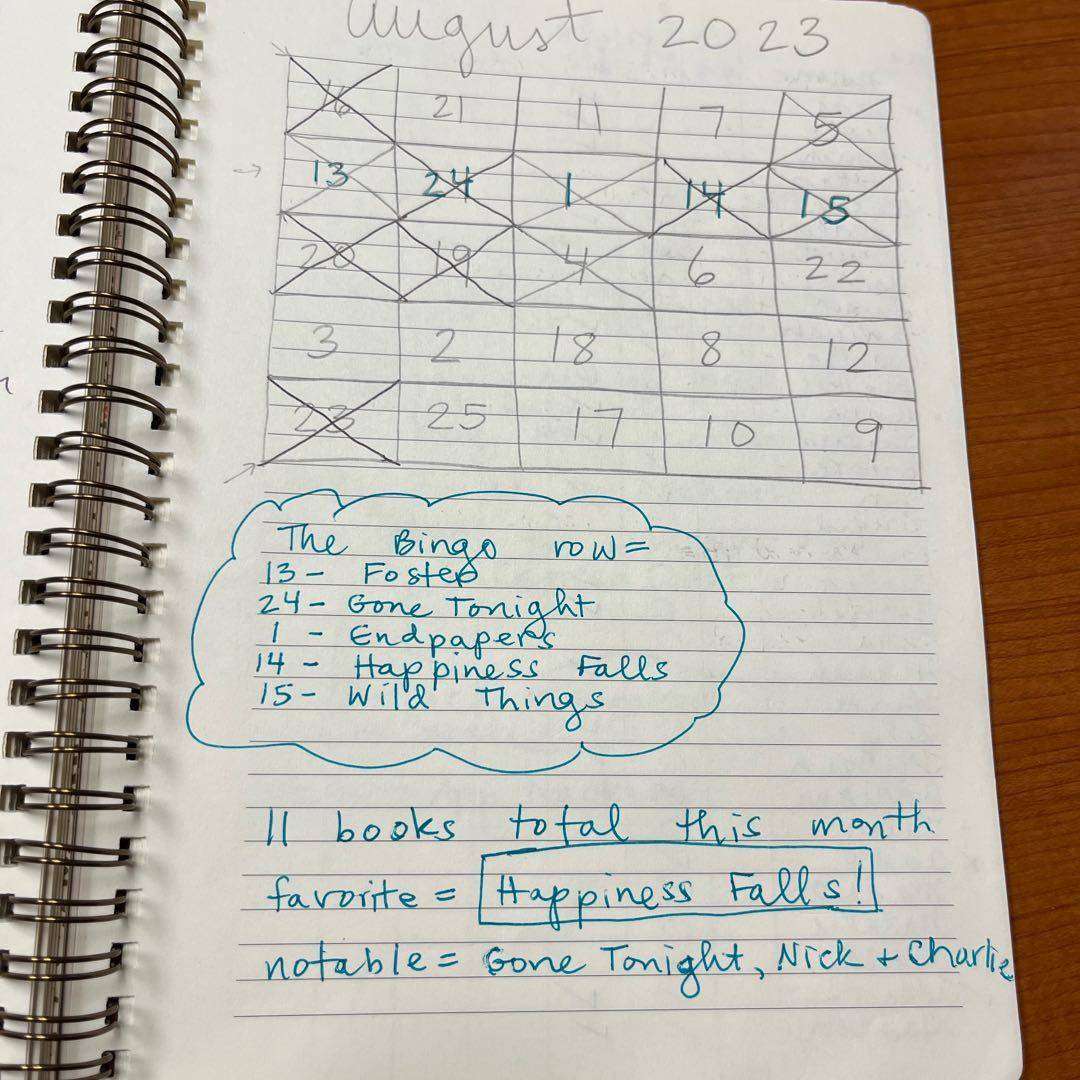 August 2023
16 21 11 7 5
13 24 1 14 15
20 19 4 6 22
3 2 18 8 12
23 25 17 10 9
The Bingo row=
13- Foster
24- Gone Tonight
1 - Endpapers
14 - Happiness Falls
15- Wild Things
11 books total this month
favorite = Happiness Falls!
notable = Gone Tonight, Nick + Charlie